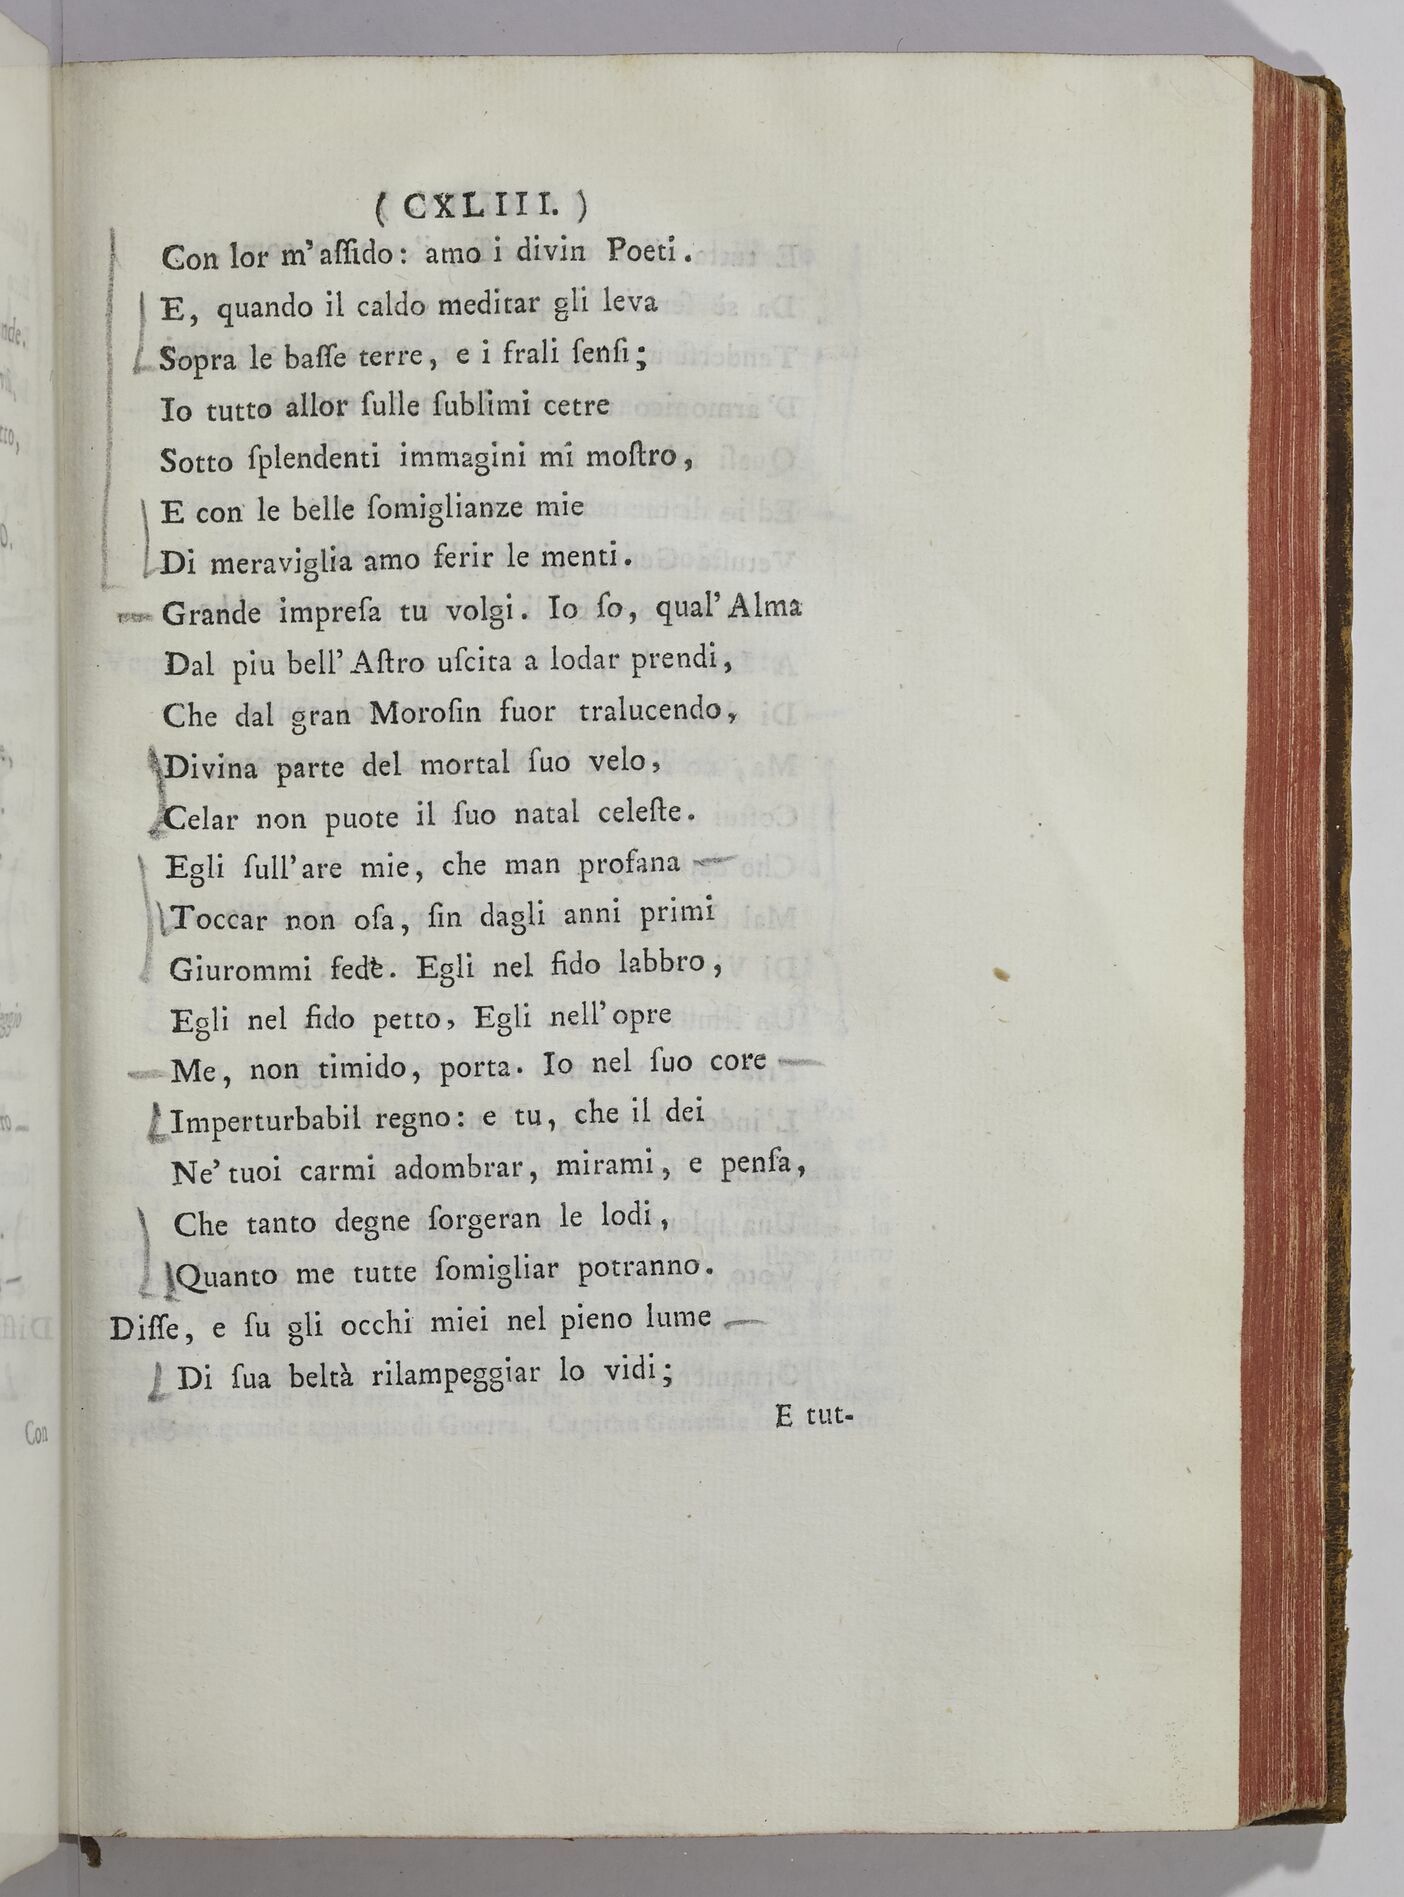 ( CXLIII. )
Con lor m'aſſido: amo i divin Poeti.
E, quando il caldo meditar gli leva
Sopra le baſſe terre, e i frali ſenſi;
Io tutto allor ſulle ſublimi cetre
Sotto ſplendenti immagini mi moſtro,
E con le belle ſomiglianze mie
Di meraviglia amo ferir le menti.
Grande impreſa tu volgi. Io ſo, qual' Alma
Dal piu bell' Aſtro uſcita a lodar prendi,
Che dal gran Moroſin fuor tralucendo,
Divina parte del mortal ſuo velo,
Celar non puote il ſuo natal celeſte.
Egli ſull'are mie, che man profana
Toccar non oſa, ſin dagli anni primi
Giurommi fede. Egli nel fido labbro,
Egli nel fido petto, Egli nell'opre
Me, non timido, porta. Io nel ſuo core
Imperturbabil regno: e tu, che il dei
Ne' tuoi carmi adombrar, mirami, e penſa,
Che tanto degne ſorgeran le lodi,
Quanto me tutte ſomigliar potranno.
Diſſe, e ſu gli occhi miei nel pieno lume
Di ſua beltà rilampeggiar lo vidi;
E tut-
Con